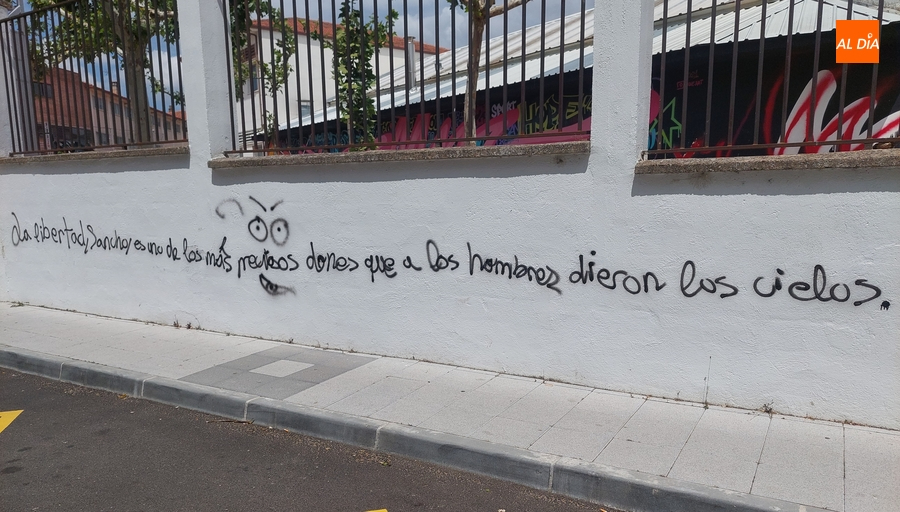 AL DÍA
SPORT
La libertad, Sancho, es uno de los más preciosos dones que a los hombres dieron los cielos.